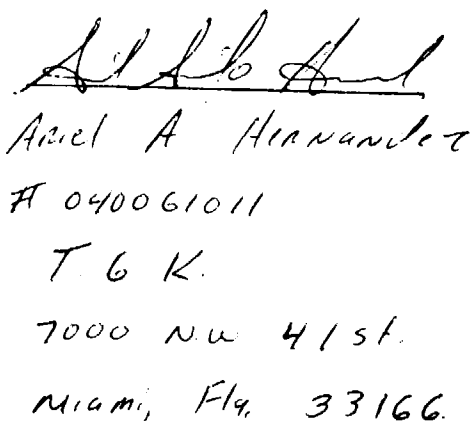 Ariel A Hernandez
# 040061011
T. G K.
7000 N.W 41 st.
Miami, Fla. 33166.